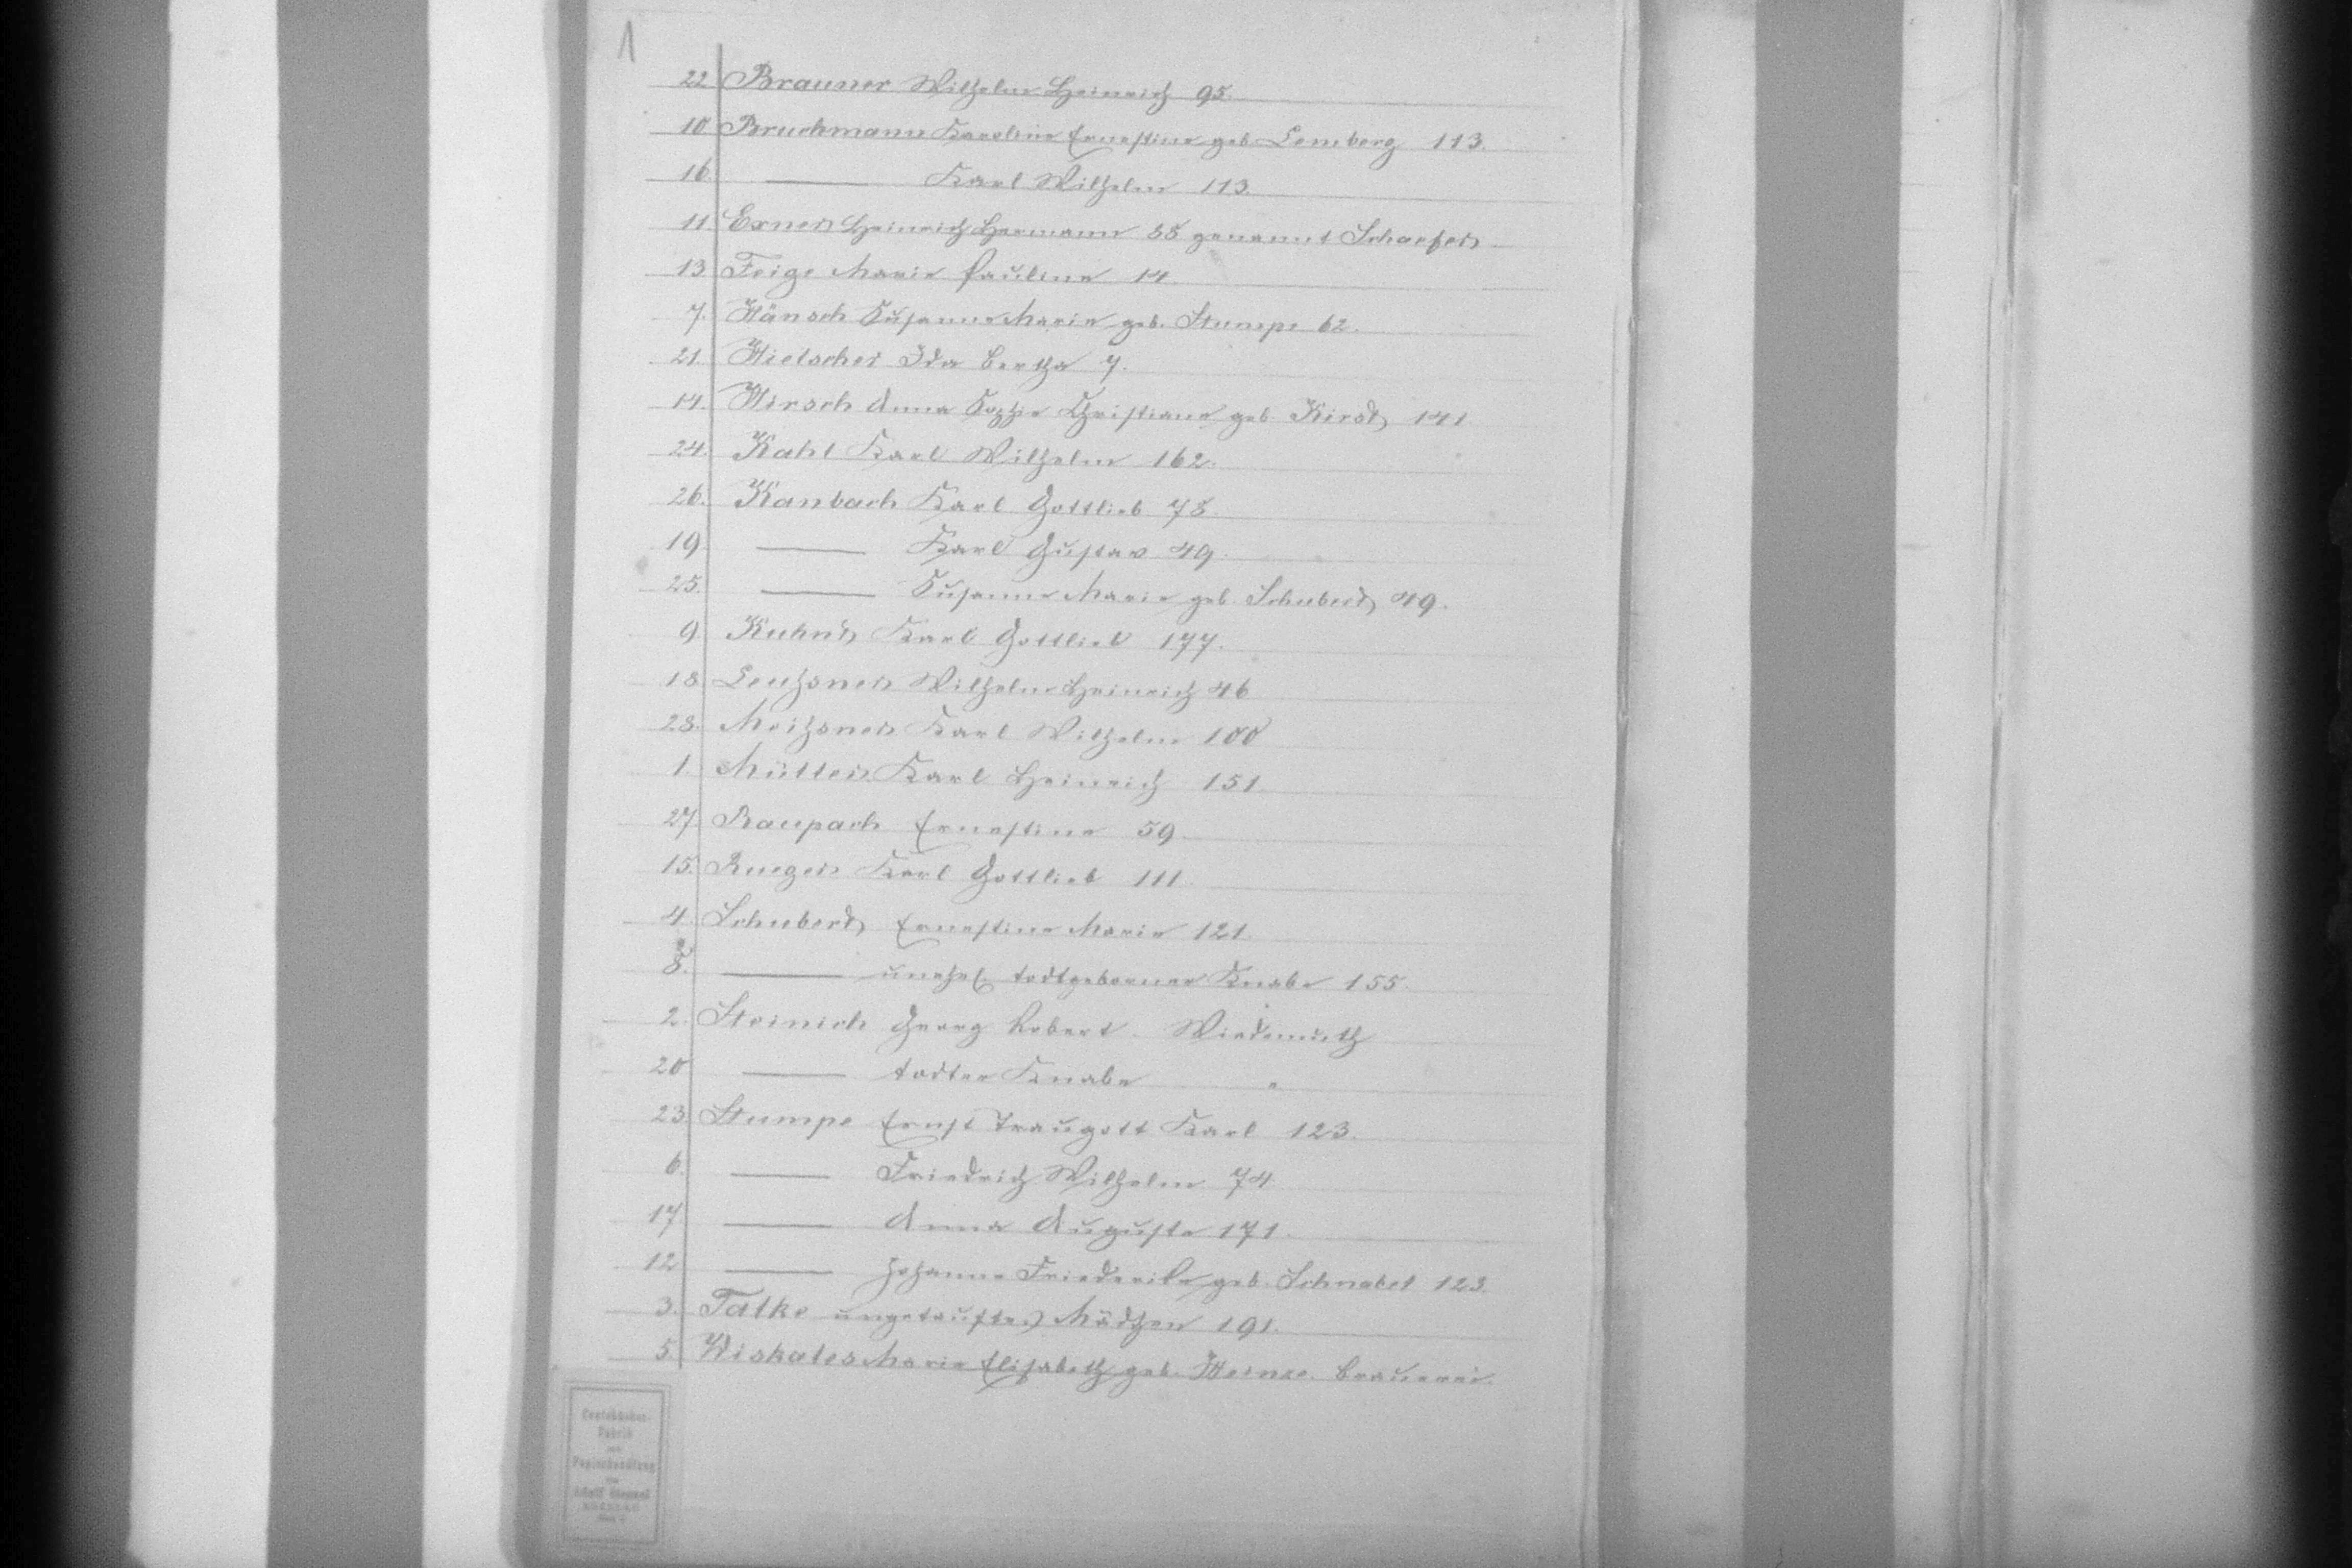 1
22. Brauner Wilhelm Heinrich 95.
10. Bruchmann Karoline Ernestine geb. Lemberg 113.
16. ——— Karl Wilhelm 113.
11. Exner Heinrich Hermann 88 genannt Schaefer
13. Feige Marie Pauline 14.
7. Hänsch Susanne Marie geb. Stumpe 62.
21. Hielscher Ida Bertha 7.
14. Hirsch Anna Sophie Christiane geb. Kirst 141.
24. Kahl Karl Wilhelm 162.
26. Kanbach Karl Gottlieb 78.
19. ——— Karl Gustav 49.
25. ——— Susanne Marie geb. Schubert 49.
9. Kuhnt Karl Gottlieb 177.
18. Leuchsner Wilhelm Heinrich 46
28. Meißner Karl Wilhelm 100
1. Müller Karl Heinrich 151.
27. Raupach Ernestine 59.
15. Rueger Karl Gottlieb 111.
4. Schubert Ernestine Marie 121.
8. ——— unehel. todtgeborner Knabe 155.
2. Steinich Georg Robert. Wiedemuth
20 ——— todter Knabe "
23. Stumpe Ernst Traugott Karl 123.
6. ——— Friedrich Wilhelm 74
17 ——— Anna Auguste 171.
12 ——— Johanne Friederike geb. Schnabel 123.
3. Talke ungetauftes Mädchen 191.
5. Wiskales Marie Elisabeth geb. Heinze. Brauerei.
Fabrik
Papierhandlung